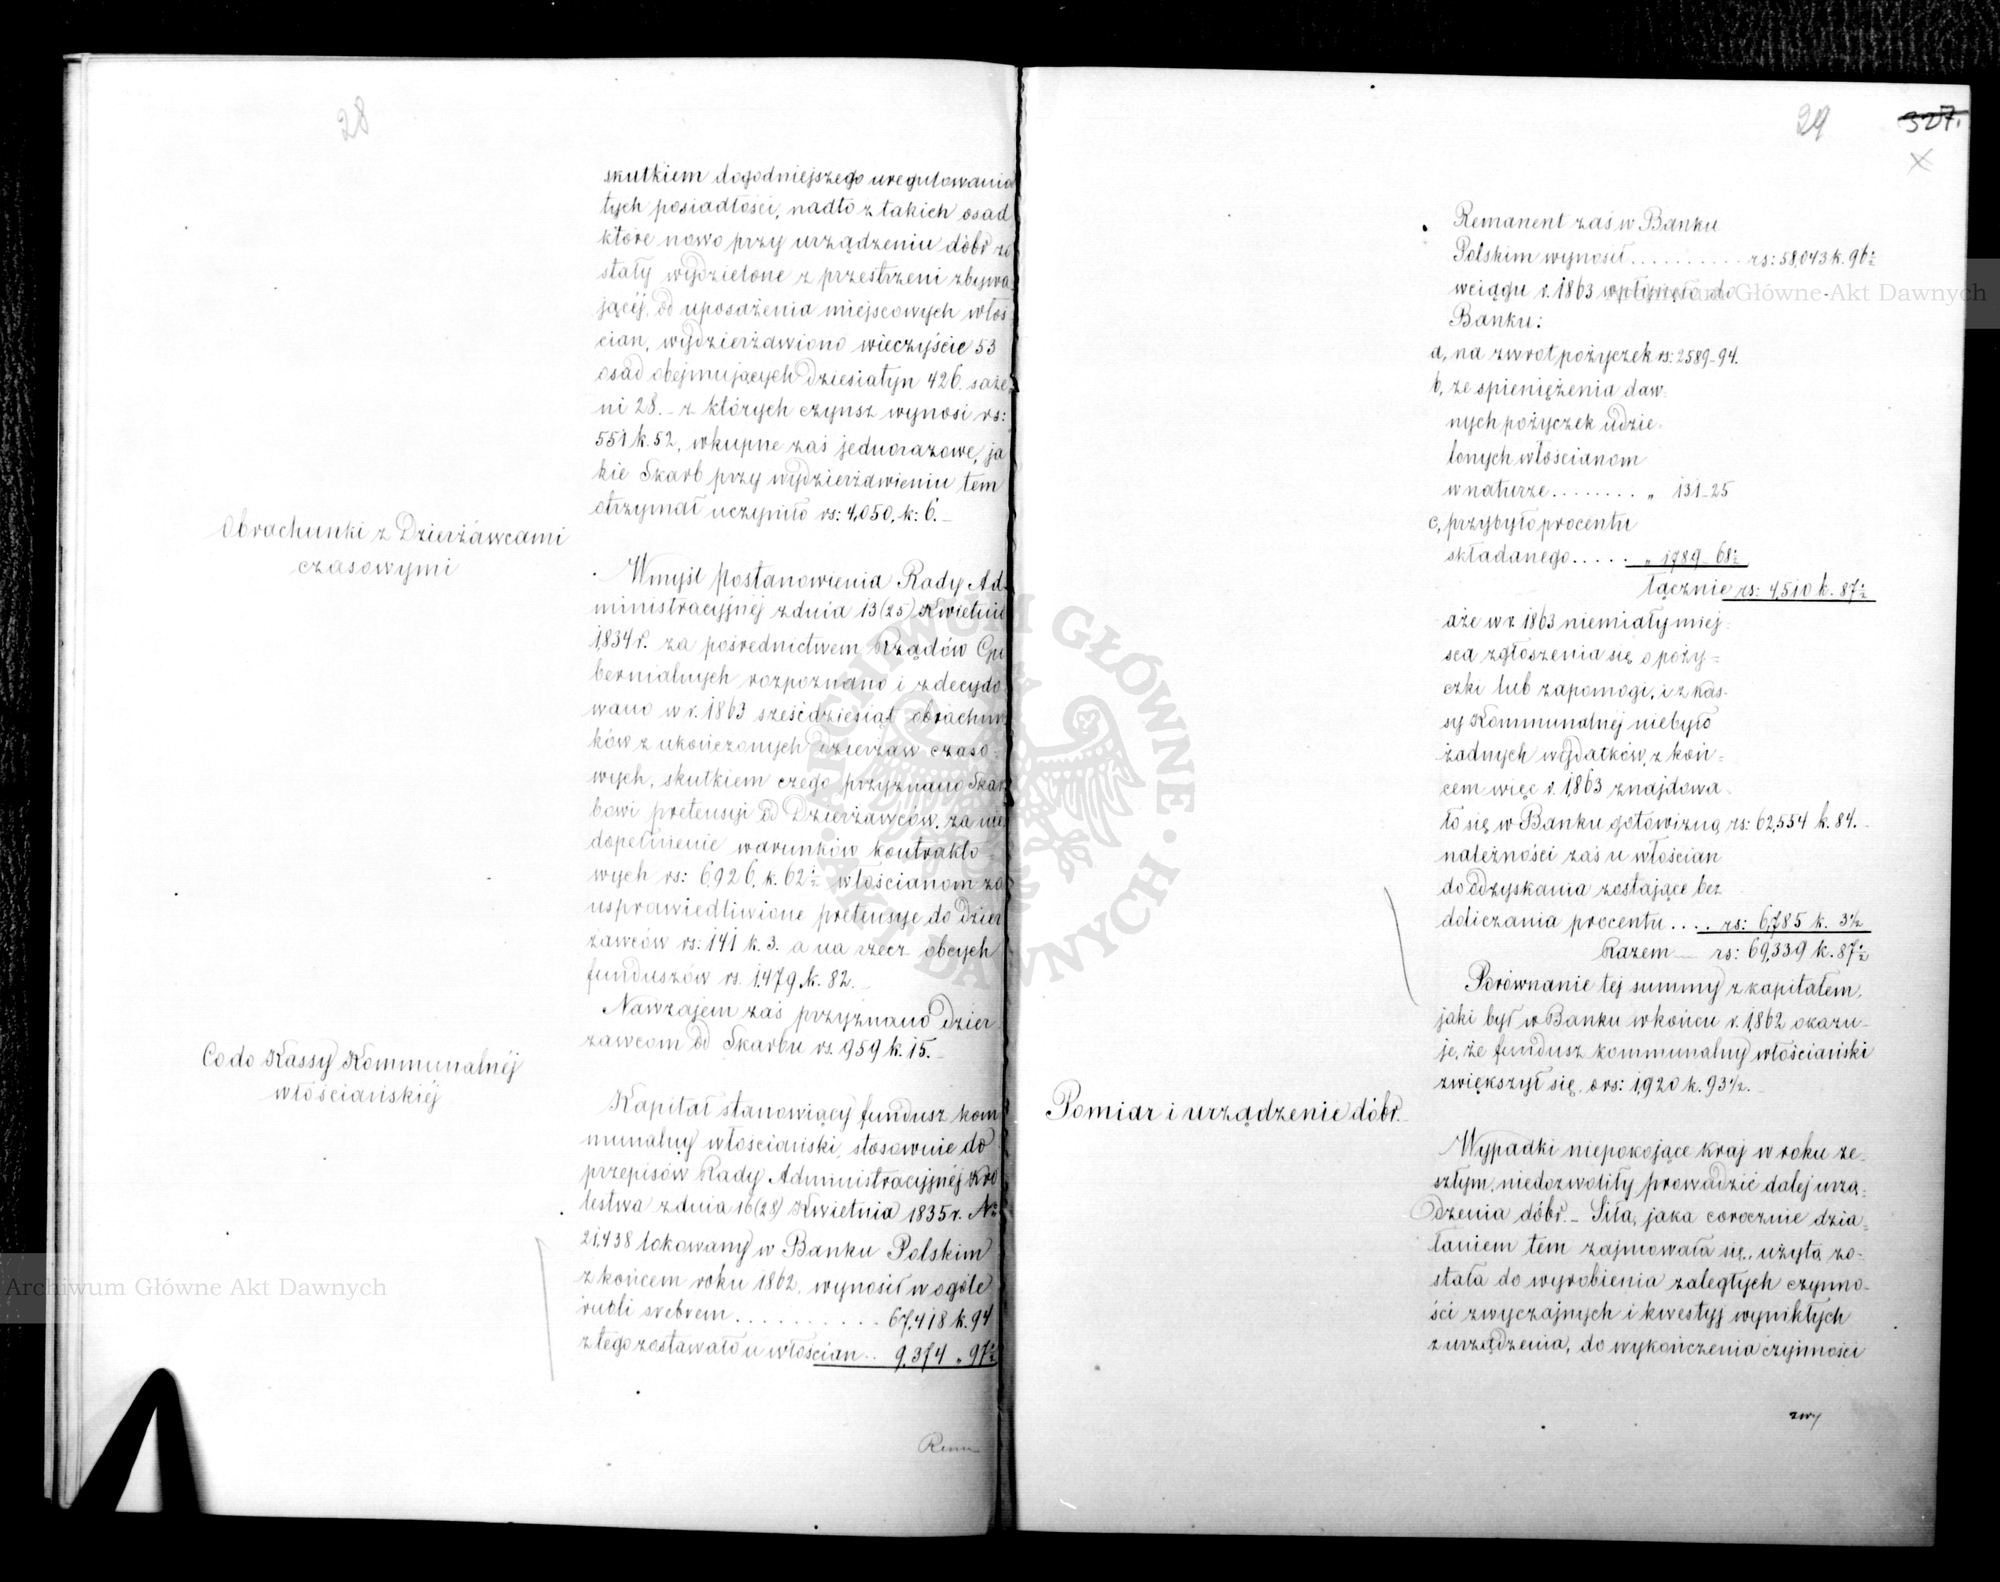 28
skutkiem dogodniejszego uregulowania
tych posiadłości, nadto z takich osad
które nowo przy urządzeniu dóbr zo
stały wydzielone z przestrzeni zbywa
jącéj od uposażenia miejscowych włoś
cian, wydzierżawiono wieczyście 53
osad obejmujących Dziesiatyn 426 saże
ni 28. – z których czynsz wynosi rs:
551 k. 52, wkupne zaś jednorazowe, ja
kie Skarb przy wydzierżawieniu tem
otrzymał uczyniło rs: 4,050, k: 6. –
Obrachunki z Dzierżawcami
czasowymi
Wmyśl postanowienia Rady Ad-
ministracyjnéj z dnia 13 (25) Kwietnia
1834 r. za pośrednictwem Rządów Gu
bernialnych rozpoznano i zdecydo
wano w r. 1863 sześćdziesiąt obrachun
ków z ukończonych dzierżaw czaso-
wych, skutkiem czego przyznano Skar
bowi pretensji od Dzierżawców, za nie
dopełnienie warunków kontrakto-
wych rs: 6,926, k. 62½ włościanom za
usprawiedliwione pretensje do dzier
żawców rs: 141 k. 3. a na rzecz obcych
funduszów rs. 1,479, k. 82. –
Nawzajem zaś przyznano Dzier
żawcom od Skarbu rs. 959 k. 15. –
Co do Kassy Kommunalnéj
włościańskiéj
Kapitał stanowiący fundusz kom
munalny włościański, stosownie do
przepisów Rady Administracyjnéj Kró
lestwa z dnia 16 (28) Kwietnia 1835 r. Nº
21,438 lokowany w Banku Polskim
z końcem roku 1862, wynosił w ogóle
rubli srebrem . . . . . . . . . . . 67,418 k. 94
z tego zostawało u włościan . . 9,374 „ 97½
Rema
29
327.
Remanent zaś w Banku
Polskim wynosił . . . . . . . . . . rs: 58,043 k. 96½
wciągu r. 1863 wpłynęło do
Banku:
a, na zwrot pożyczek rs: 2589 – 94.
b, ze spieniężenia daw-
nych pożyczek udzie-
lonych włościanom
w naturze . . . . . . . . „ 131 – 25
c, przybyło procentu
składanego . . . . . „ 1789 – 68½
łącznie rs: 4,510 k. 87½
a że w r. 1863 niemiały miej-
sca zgłoszenia się o poży-
czki lub zapomogi, i z kas-
sy Kommunalnéj niebyło
żadnych wydatków, z koń-
cem więc r. 1863 znajdowa-
ło się w Banku gotowizną rs: 62,554 k. 84. –
należności zaś u włościan
do odzyskania zostające bez
doliczania procentu . . . . rs: 6,785 k. 3½
Razem – rs: 69,339 k. 87½
Porównanie téj summy z kapitałem,
jaki był w Banku w końcu r. 1862 okazu-
je, że fundusz kommunalny włościański
zwiększył się o rs: 1,920 k. 93½. –
Pomiar i urządzenie dóbr. –
Wypadki niepokojące kraj w roku ze-
szłym, niedozwoliły prowadzić daléj urzą-
dzenia dóbr. – Siła, jaka corocznie dzia-
łaniem tem zajmowała się, użytą zo-
stała do wyrobienia zaległych czynno-
ści zwyczajnych i kwestyj wynikłych
z urządzenia, do wykończenia czynności
zwy
Archiwum Główne Akt Dawnych
Archiwum Główne Akt Dawnych
ARCHIWUM GŁÓWNE · AKT DAWNYCH ·